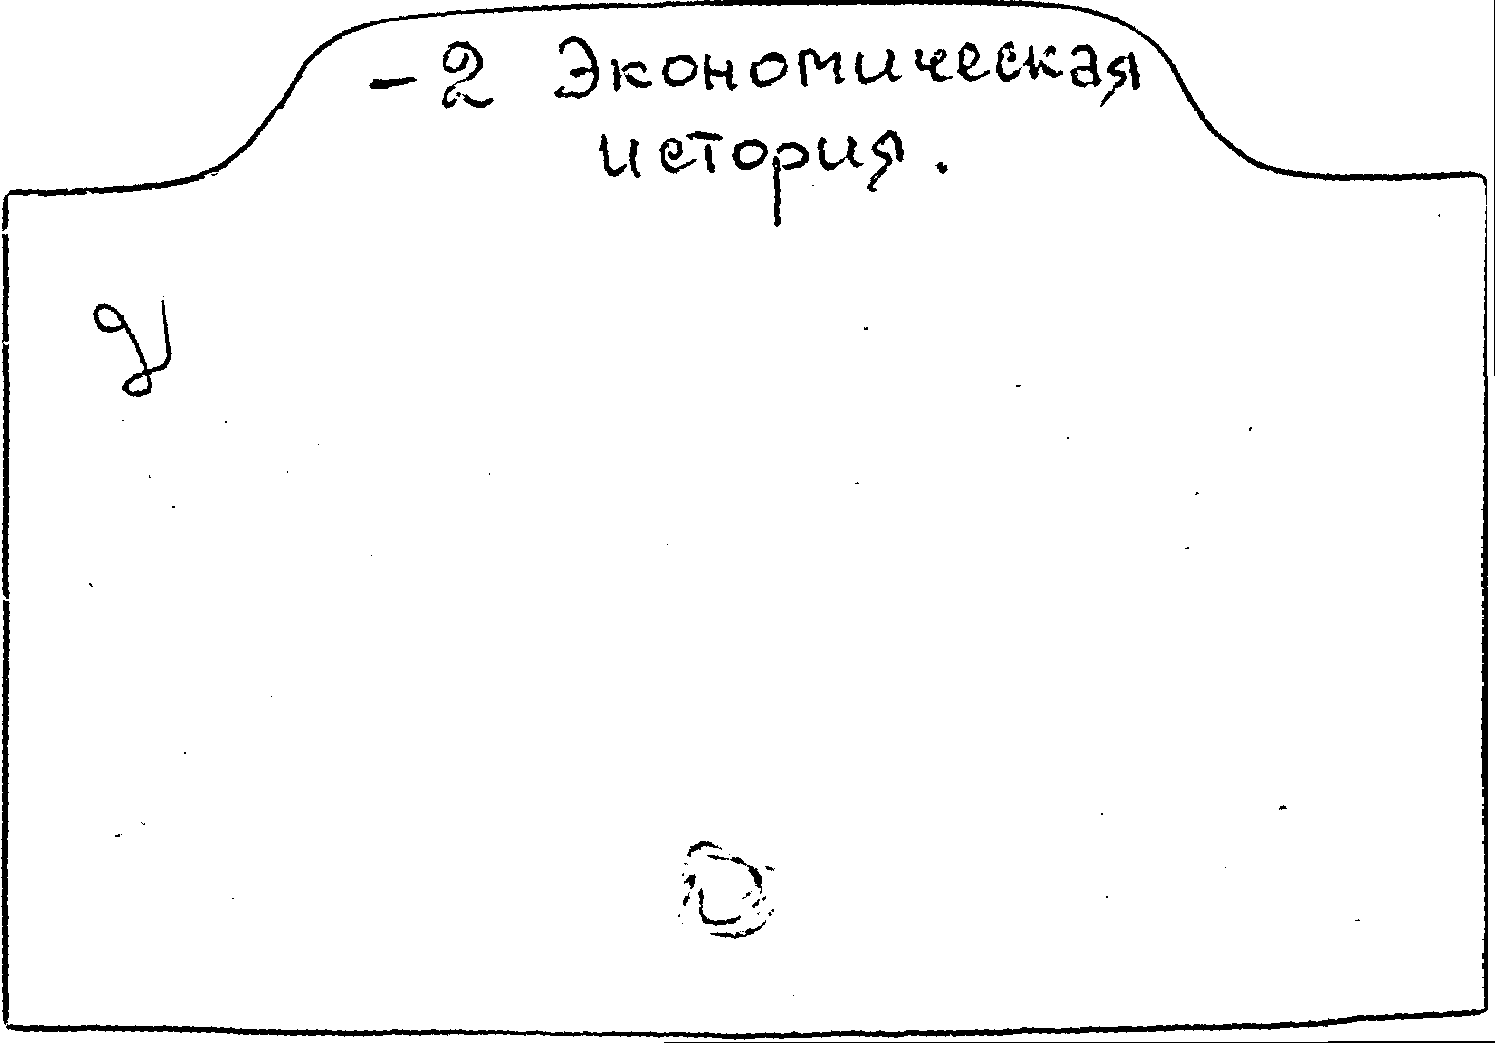 -2 Экономическая
история.